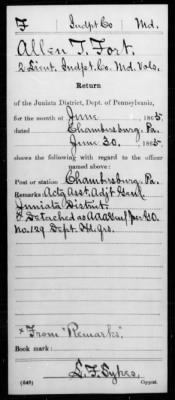 F Indpt Co Md.
Allen T. Fort.
2 Lieut. Indpt. Co. Md. Vols.
Return
of the Juniata District, Dept. of Pennsylvania,
for the month of June 1865
dated Chambersburg, Pa.
June 30. 1865
shows the following with regard to the officer
named above:
Post or station Chambersburg, Pa.
Remarks Actg Asst. Adjt Genl.
Juniata District.
x Detached as AAAGenl per G.O.
No. 129 Dept. Hd. qrs.
x From "Remarks."
Book mark:
L. F. Sykes,
(649) Copyist.